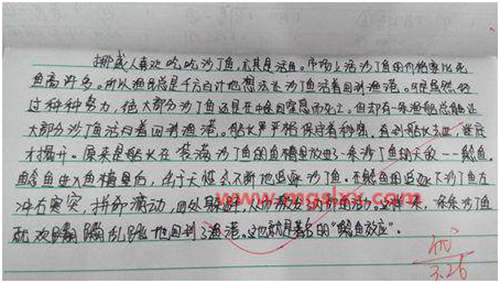 挪威人喜欢吃沙丁鱼,尤其是活鱼。市场上活沙丁鱼的价格要比死
鱼高许多。所以渔民总是千方百计地想法让沙丁鱼活着回到渔港。可是虽然经
过种种努力,绝大部分沙丁鱼还是在中途因窒息而死亡。但却有一条渔船总能让
大部分沙丁鱼活着回到渔港。船长严格保守着秘密,直到船长去世,谜底
才揭开。原来是船长在装满沙丁鱼的鱼槽里放进了一条沙丁鱼的天敌——鲶鱼。
鲶鱼进入鱼槽里后,由于天性会不断地追逐沙丁鱼。在鲶鱼的追逐下沙丁鱼左
冲右突,拼命游动,四处躲避,从而 。这样一来,一条条沙丁鱼
就欢蹦乱跳地回到了渔港。这也就是著名的“鲶鱼效应”。
www.mgslxx.com
优
3.26